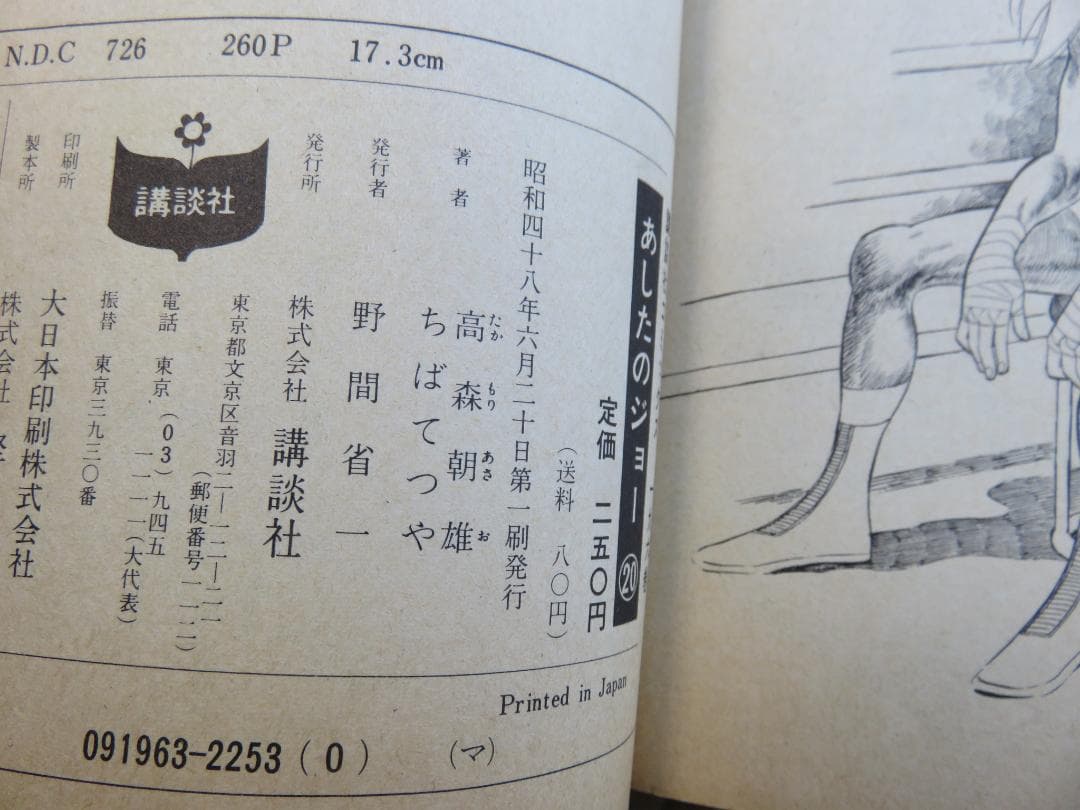 N.D.C 726 260P 17.3cm
あしたのジョー ⑳
定価 二五〇円
(送料 八〇円)
昭和四十八年六月二十日第一刷発行
著者
高森朝雄
たか もり あさ お
ちばてつや
発行者
野間省一
発行所
株式会社 講談社
東京都文京区音羽二―一二―二一
(郵便番号一一二)
電話 東京(03)九四五
一一一一(大代表)
振替 東京三九三〇番
講談社
印刷所
大日本印刷株式会社
製本所
株式会社
Printed in Japan
091963-2253(0) (マ)